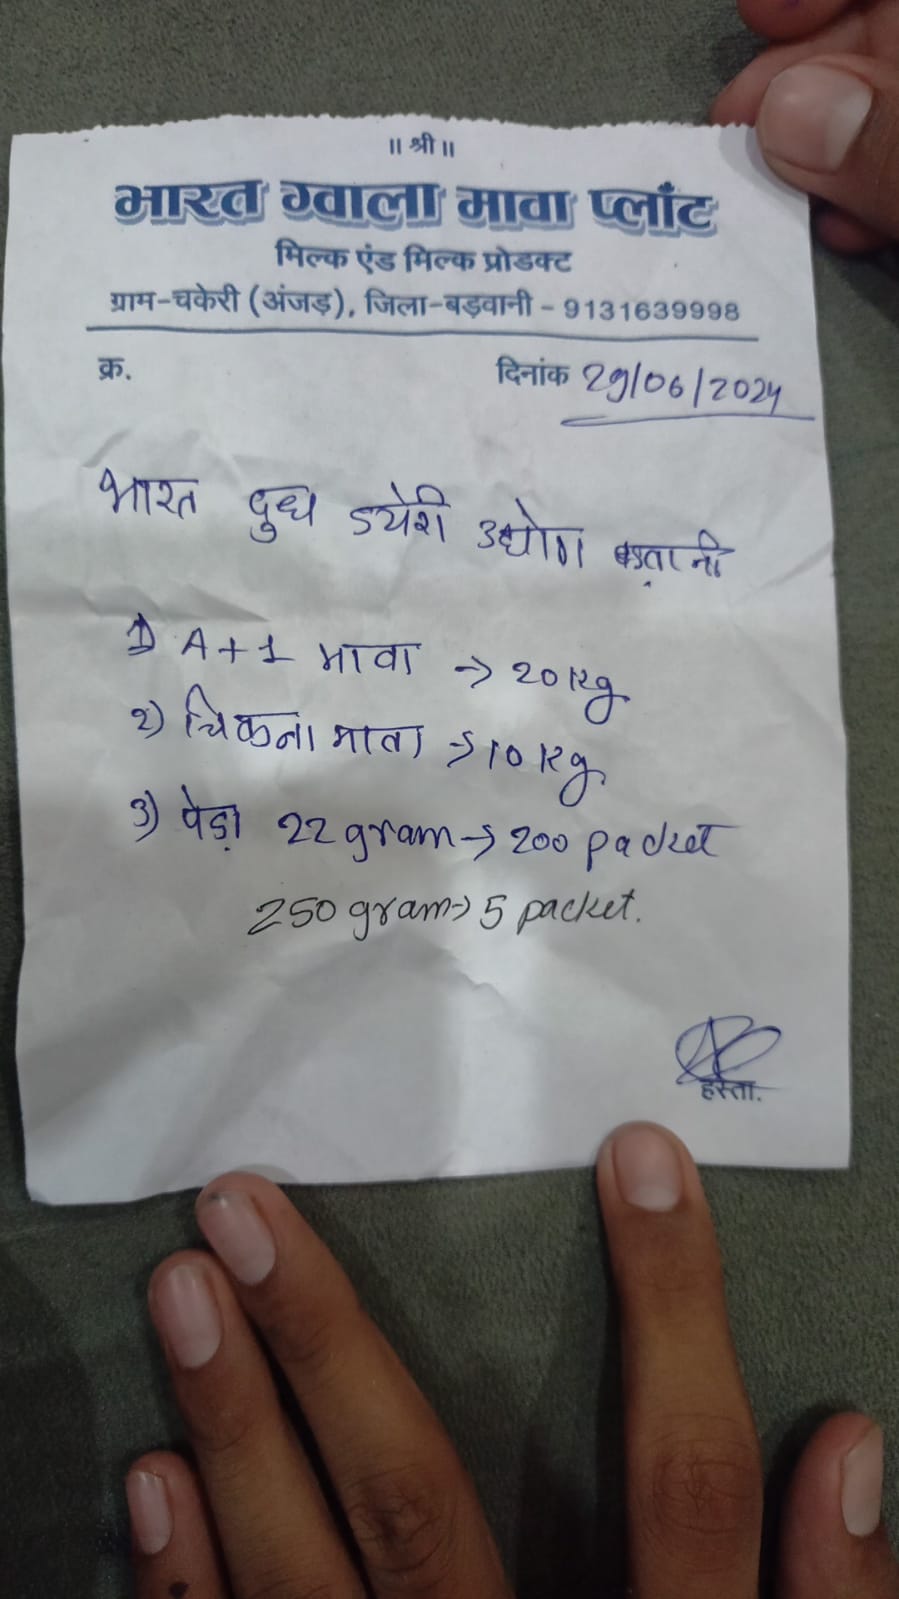 ॥ श्री ॥
भारत ग्वाला मावा प्लाँट
मिल्क एंड मिल्क प्रोडक्ट
ग्राम-चकेरी (अंजड़), जिला-बड़वानी - 9131639998
क्र. दिनांक 29/06/2024
भारत दुध डयेरी उद्योग बड़वानी
1) A+1 मावा → 20 Kg
2) चिकना मावा → 10 Kg
3) पेड़ा 22 gram → 200 packet
250 gram → 5 packet.
हस्ता.